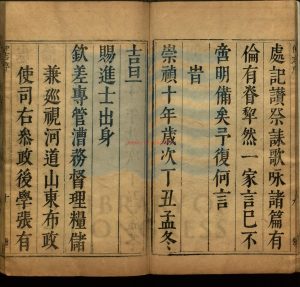 處記讚祭誄歌咏諸篇有
倫有脊犂然一家言已不
啻明備矣予復何言
旹
崇禎十年歲次丁丑孟冬
吉旦
賜進士出身
欽差專管漕務督理糧儲
兼巡視河道山東布政
使司右叅政後學張有